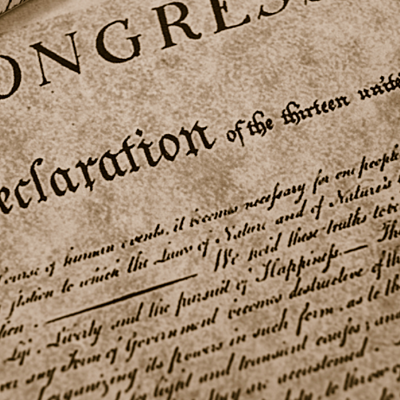 ONGRESS
eclaration of the thirteen unite
ourse of human events, it becomes necessary for one people
station to which the Laws of Nature and of Nature's
tion. We hold these truths to be
Life, Liberty and the pursuit of Happiness.— Tha
ver any Form of Government becomes destructive of th
organizing its powers in such form, as to th
for light and transient causes; and
they are accustomed
to throw